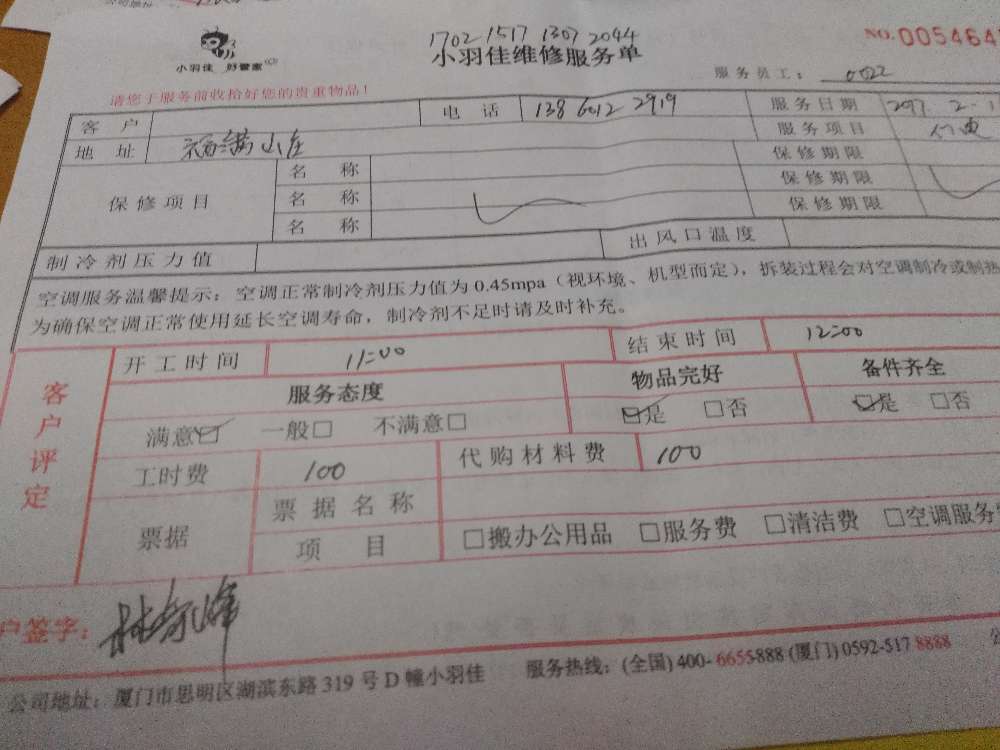 1702 1517 1307 2044
小羽佳 好管家
小羽佳维修服务单
NO.005464
服务员工: 0022
请您于服务前收拾好您的贵重物品!
客 户 电 话 138 6012 2919 服务日期
地 址 福满山庄 服务项目
保修项目 名 称 保修期限
名 称 保修期限
名 称 保修期限
制冷剂压力值 出风口温度
空调服务温馨提示:空调正常制冷剂压力值为0.45mpa(视环境、机型而定),拆装过程会对空调制冷或制热
为确保空调正常使用延长空调寿命,制冷剂不足时请及时补充。
客户评定
开工时间 11:00 结束时间 12:00
服务态度 物品完好 备件齐全
满意☑ 一般□ 不满意□ ☑是 □否 ☑是 □否
工时费 100 代购材料费 100
票据 票据名称
项 目 □搬办公用品 □服务费 □清洁费 □空调服务
户签字:
公司地址:厦门市思明区湖滨东路319号D幢小羽佳 服务热线:(全国)400-6655888(厦门)0592-5178888